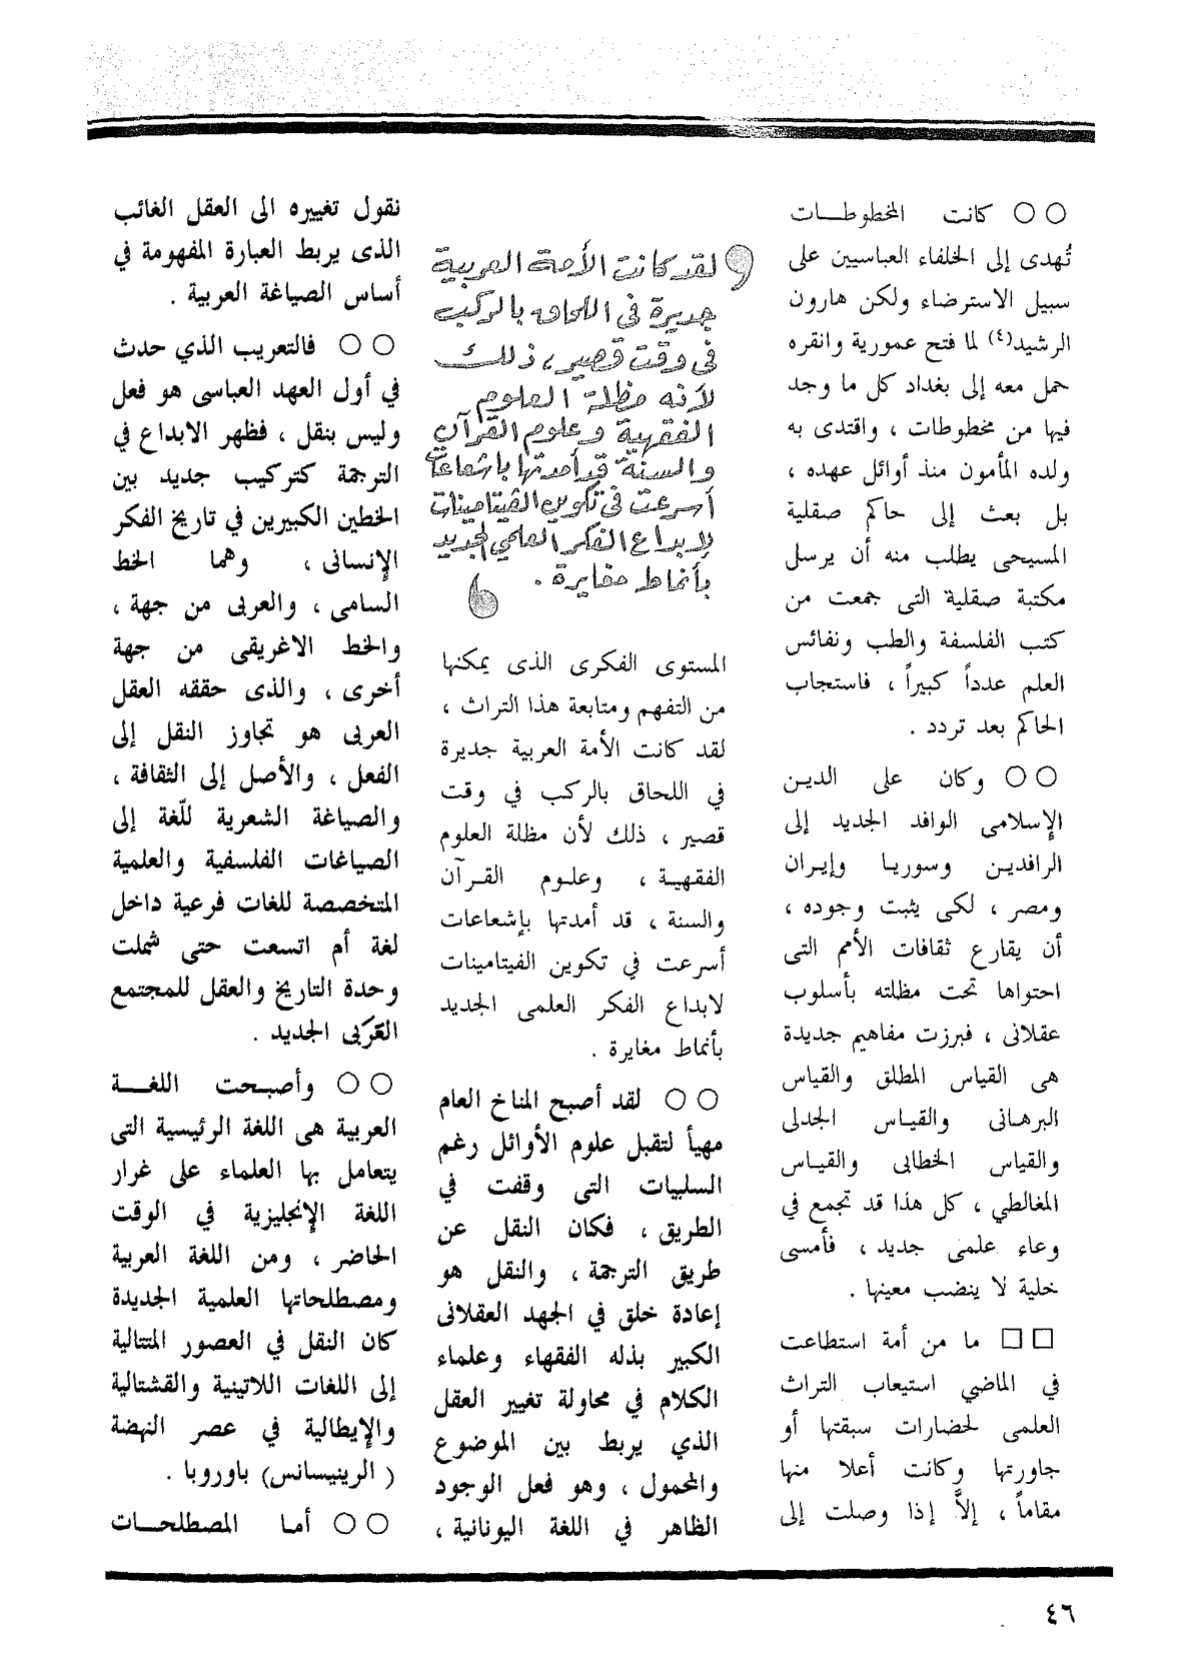 ○○ كانت المخطوطــات
تُهدى إلى الخلفاء العباسيين على
سبيل الاسترضاء ولكن هارون
الرشيد(٤) لما فتح عمورية وانقره
حمل معه إلى بغداد كل ما وجد
فيها من مخطوطات ، واقتدى به
ولده المأمون منذ أوائل عهده ،
بل بعث إلى حاكم صقلية
المسيحى يطلب منه أن يرسل
مكتبة صقلية التى جمعت من
كتب الفلسفة والطب ونفائس
العلم عدداً كبيراً ، فاستجاب
الحاكم بعد تردد .
○○ وكان على الديـن
الإسلامى الوافد الجديد إلى
الرافديـن وسوريـا وإيـران
ومصر ، لكى يثبت وجوده ،
أن يقارع ثقافات الأمم التى
احتواها تحت مظلته بأسلوب
عقلانى ، فبرزت مفاهيم جديدة
هى القياس المطلق والقياس
البرهـانى والقيـاس الجدلى
والقياس الخطابى والقيـاس
المغالطي ، كل هذا قد تجمع في
وعاء علمى جديد ، فأمسى
خلية لا ينضب معينها .
□□ ما من أمة استطاعت
في الماضي استيعاب التراث
العلمى لحضارات سبقتها أو
جاورتها وكانت أعلا منها
مقاماً ، إلاَّ إذا وصلت إلى
لقد كانت الأمة العربية
جديرة في اللحاق بالركب
فى وقت قصير ، ذلك
لأنه مظلة العلوم
الفقهية وعلوم القرآن
والسنة قد أمدتها باشعاعات
أسرعت فى تكوين الفيتامينات
لابداع الفكر العلمي الجديد
بأنماط مغايرة .
المستوى الفكرى الذى يمكنها
من التفهم ومتابعة هذا التراث ،
لقد كانت الأمة العربية جديرة
في اللحاق بالركب في وقت
قصير ، ذلك لأن مظلة العلوم
الفقهيـة ، وعلـوم القـرآن
والسنة ، قد أمدتها بإشعاعات
أسرعت في تكوين الفيتامينات
لابداع الفكر العلمى الجديد
بأنماط مغايرة .
○○ لقد أصبح المناخ العام
مهيأ لتقبل علوم الأوائل رغم
السلبيات التى وقفت في
الطريق ، فكان النقل عن
طريق الترجمة ، والنقل هو
إعادة خلق في الجهد العقلانى
الكبير بذله الفقهاء وعلماء
الكلام في محاولة تغيير العقل
الذي يربط بين الموضوع
والمحمول ، وهو فعل الوجود
الظاهر في اللغة اليونانية ،
نقول تغييره الى العقل الغائب
الذى يربط العبارة المفهومة في
أساس الصياغة العربية .
○○ فالتعريب الذي حدث
في أول العهد العباسى هو فعل
وليس بنقل ، فظهر الابداع في
الترجمة كتركيب جديد بين
الخطين الكبيرين في تاريخ الفكر
الإنسانى ، وهما الخط
السامى ، والعربى من جهة ،
والخط الاغريقى من جهة
أخرى ، والذى حققه العقل
العربى هو تجاوز النقل إلى
الفعل ، والأصل إلى الثقافة ،
والصياغة الشعرية للّغة إلى
الصياغات الفلسفية والعلمية
المتخصصة للغات فرعية داخل
لغة أم اتسعت حتى شملت
وحدة التاريخ والعقل للمجتمع
العربى الجديد .
○○ وأصبـحت اللغــة
العربية هى اللغة الرئيسية التى
يتعامل بها العلماء على غرار
اللغة الإنجليزية في الوقت
الحاضر ، ومن اللغة العربية
ومصطلحاتها العلمية الجديدة
كان النقل في العصور المتتالية
إلى اللغات اللاتينية والقشتالية
والإيطالية في عصر النهضة
( الرينيسانس) باوروبا .
○○ أمـا المصطلحــات
٤٦